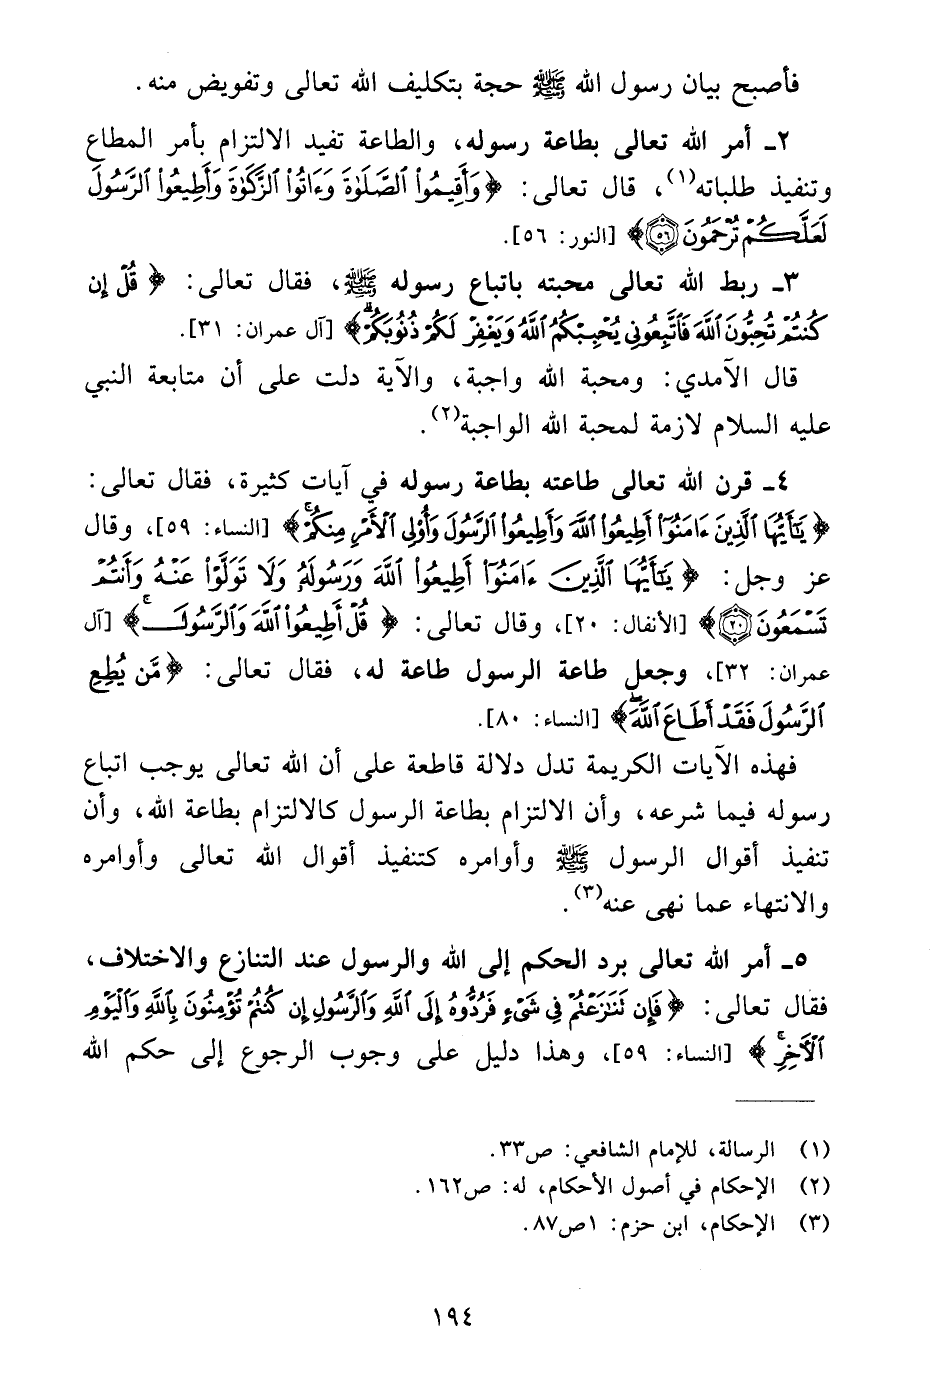 فأصبح بيان رسول الله ﷺ حجة بتكليف الله تعالى وتفويض منه.
٢ـ أمر الله تعالى بطاعة رسوله، والطاعة تفيد الالتزام بأمر المطاع
وتنفيذ طلباته(١)، قال تعالى: ﴿وَأَقِيمُوا۟ ٱلصَّلَوٰةَ وَءَاتُوا۟ ٱلزَّكَوٰةَ وَأَطِيعُوا۟ ٱلرَّسُولَ
لَعَلَّكُمْ تُرْحَمُونَ ٥٦﴾ [النور: ٥٦].
٣ـ ربط الله تعالى محبته باتباع رسوله ﷺ، فقال تعالى: ﴿قُلْ إِن
كُنتُمْ تُحِبُّونَ ٱللَّهَ فَٱتَّبِعُونِى يُحْبِبْكُمُ ٱللَّهُ وَيَغْفِرْ لَكُمْ ذُنُوبَكُمْ ۗ﴾ [آل عمران: ٣١].
قال الآمدي: ومحبة الله واجبة، والآية دلت على أن متابعة النبي
عليه السلام لازمة لمحبة الله الواجبة(٢).
٤ـ قرن الله تعالى طاعته بطاعة رسوله في آيات كثيرة، فقال تعالى:
﴿يَٰٓأَيُّهَا ٱلَّذِينَ ءَامَنُوٓا۟ أَطِيعُوا۟ ٱللَّهَ وَأَطِيعُوا۟ ٱلرَّسُولَ وَأُو۟لِى ٱلْأَمْرِ مِنكُمْ ۖ﴾ [النساء: ٥٩]، وقال
عز وجل: ﴿يَٰٓأَيُّهَا ٱلَّذِينَ ءَامَنُوٓا۟ أَطِيعُوا۟ ٱللَّهَ وَرَسُولَهُۥ وَلَا تَوَلَّوْا۟ عَنْهُ وَأَنتُمْ
تَسْمَعُونَ ٢٠﴾ [الأنفال: ٢٠]، وقال تعالى: ﴿قُلْ أَطِيعُوا۟ ٱللَّهَ وَٱلرَّسُولَ ۖ﴾ [آل
عمران: ٣٢]، وجعل طاعة الرسول طاعة له، فقال تعالى: ﴿مَّن يُطِعِ
ٱلرَّسُولَ فَقَدْ أَطَاعَ ٱللَّهَ ۖ﴾ [النساء: ٨٠].
فهذه الآيات الكريمة تدل دلالة قاطعة على أن الله تعالى يوجب اتباع
رسوله فيما شرعه، وأن الالتزام بطاعة الرسول كالالتزام بطاعة الله، وأن
تنفيذ أقوال الرسول ﷺ وأوامره كتنفيذ أقوال الله تعالى وأوامره
والانتهاء عما نهى عنه(٣).
٥ـ أمر الله تعالى برد الحكم إلى الله والرسول عند التنازع والاختلاف،
فقال تعالى: ﴿فَإِن تَنَٰزَعْتُمْ فِى شَىْءٍ فَرُدُّوهُ إِلَى ٱللَّهِ وَٱلرَّسُولِ إِن كُنتُمْ تُؤْمِنُونَ بِٱللَّهِ وَٱلْيَوْمِ
ٱلْءَاخِرِ ۚ﴾ [النساء: ٥٩]، وهذا دليل على وجوب الرجوع إلى حكم الله
(١) الرسالة، للإمام الشافعي: ص٣٣.
(٢) الإحكام في أصول الأحكام، له: ص١٦٢.
(٣) الإحكام، ابن حزم: ١ص٨٧.
١٩٤